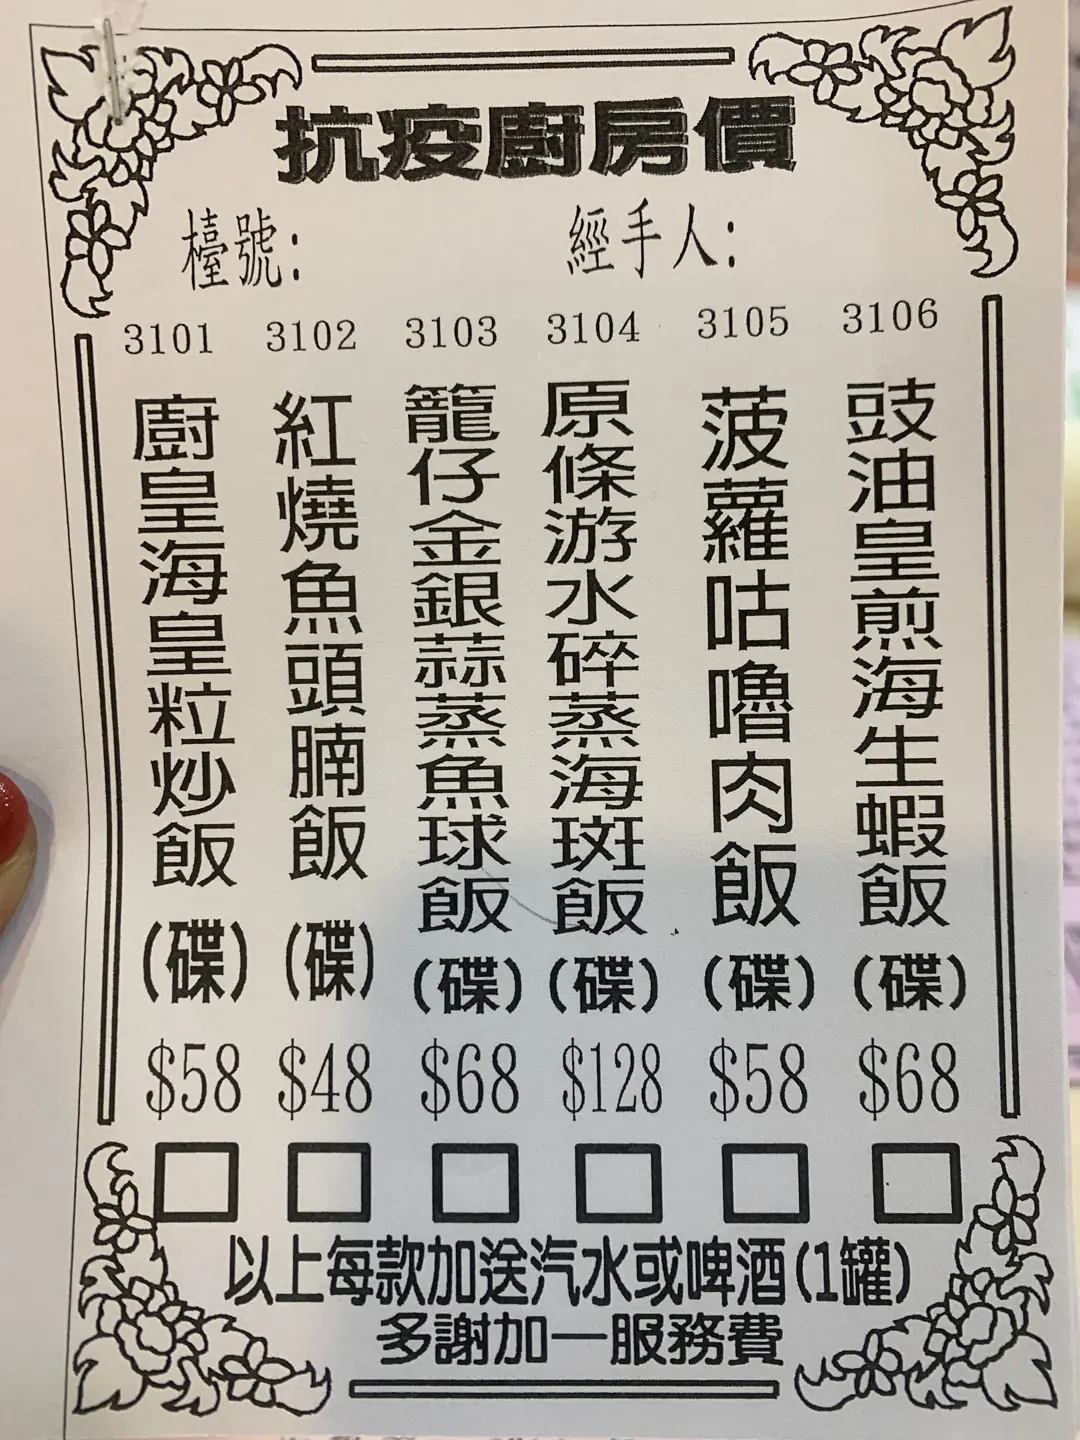 抗疫廚房價
檯號：
經手人：
3101
廚皇海皇粒炒飯
(碟)
$58
3102
紅燒魚頭腩飯
(碟)
$48
3103
籠仔金銀蒜蒸魚球飯
(碟)
$68
3104
原條游水碎蒸海斑飯
(碟)
$128
3105
菠蘿咕嚕肉飯
(碟)
$58
3106
豉油皇煎海生蝦飯
(碟)
$68
以上每款加送汽水或啤酒(1罐)
多謝加一服務費